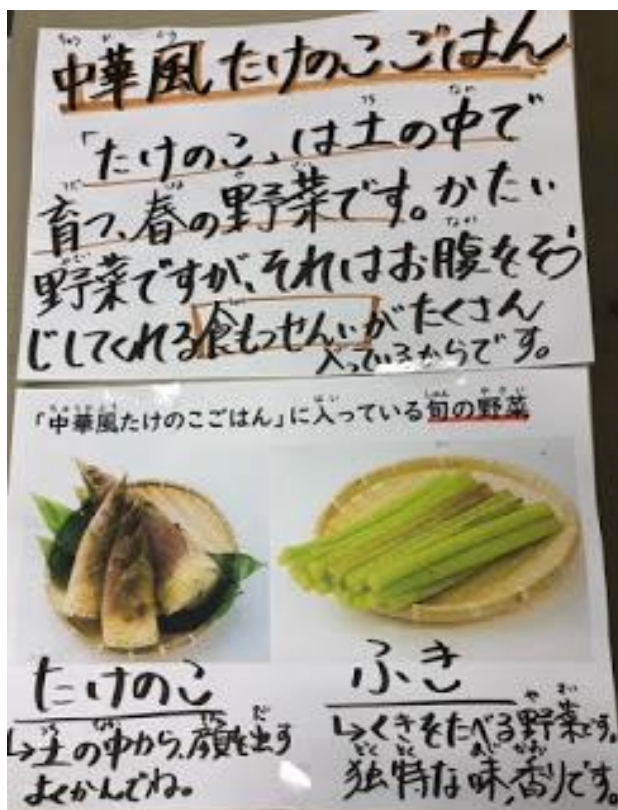 中華風たけのこごはん
「たけのこ」は土の中で
育つ、春の野菜です。かたい
野菜ですが、それはお腹をそう
じしてくれる食もつせんいがたくさん
入っているからです。
「中華風たけのこごはん」に入っている旬の野菜
たけのこ
↳土の中から、顔を出す
よくかんでね。
ふき
↳くきをたべる野菜です。
独特な味、香りです。